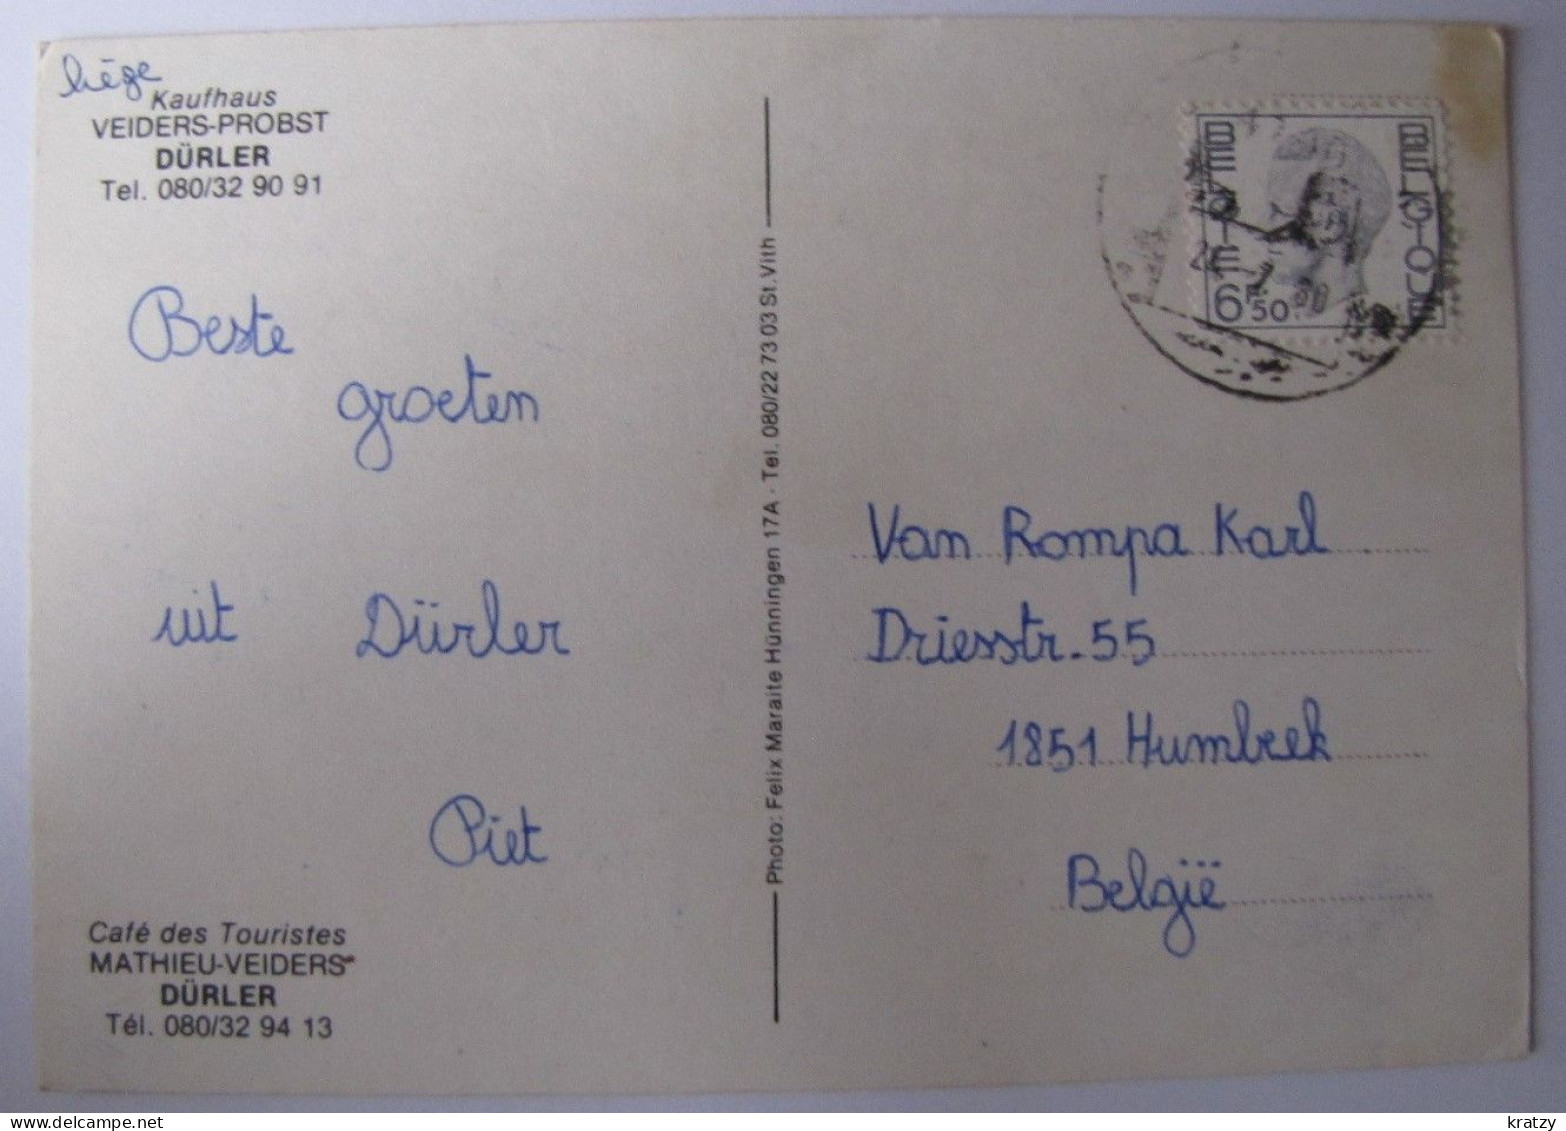 Liége
Kaufhaus
VEIDERS-PROBST
DÜRLER
Tel. 080/32 90 91
Beste
groeten
uit Dürler
Piet
Café des Touristes
MATHIEU-VEIDERS
DÜRLER
Tél. 080/32 94 13
Photo: Felix Maraite Hünningen 17A - Tel. 080/22 73 03 St. Vith
BELGIË
BELGIQUE
6F50
Van Rompa Karl
Driesstr. 55
1851 Humbeek
België
kratzy